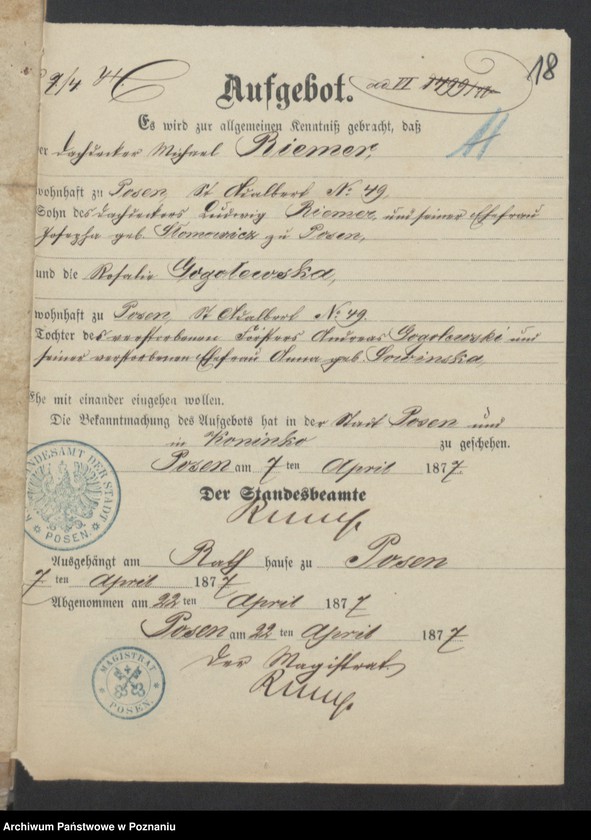 18
9/4
Aufgebot.
ad II
Es wird zur allgemeinen Kenntniß gebracht, daß
er Dachdecker Michael Riemer,
wohnhaft zu Posen, St Adalbert No 49,
Sohn des Dachdeckers Ludwig Riemer und seiner Ehefrau
Josepha geb. Slomowicz zu Posen,
und die Rosalie Gogolewska,
wohnhaft zu Posen, St Adalbert No 49.
Tochter des verstorbenen Försters Andreas Gogolewski und
seiner verstorbenen Ehefrau Anna geb. Sowinska,
Ehe mit einander eingehen wollen.
Die Bekanntmachung des Aufgebots hat in der Stadt Posen und
in Koninko zu geschehen.
Posen am 7 ten April 1877.
NDESAMT DER STADT
POSEN.
Der Standesbeamte
Ausgehängt am Rath hause zu Posen
7. ten April 1877
Abgenommen am 22 ten April 1877
Posen am 22 ten April 1877
Der Magistrat
MAGISTRAT
POSEN.
Archiwum Państwowe w Poznaniu